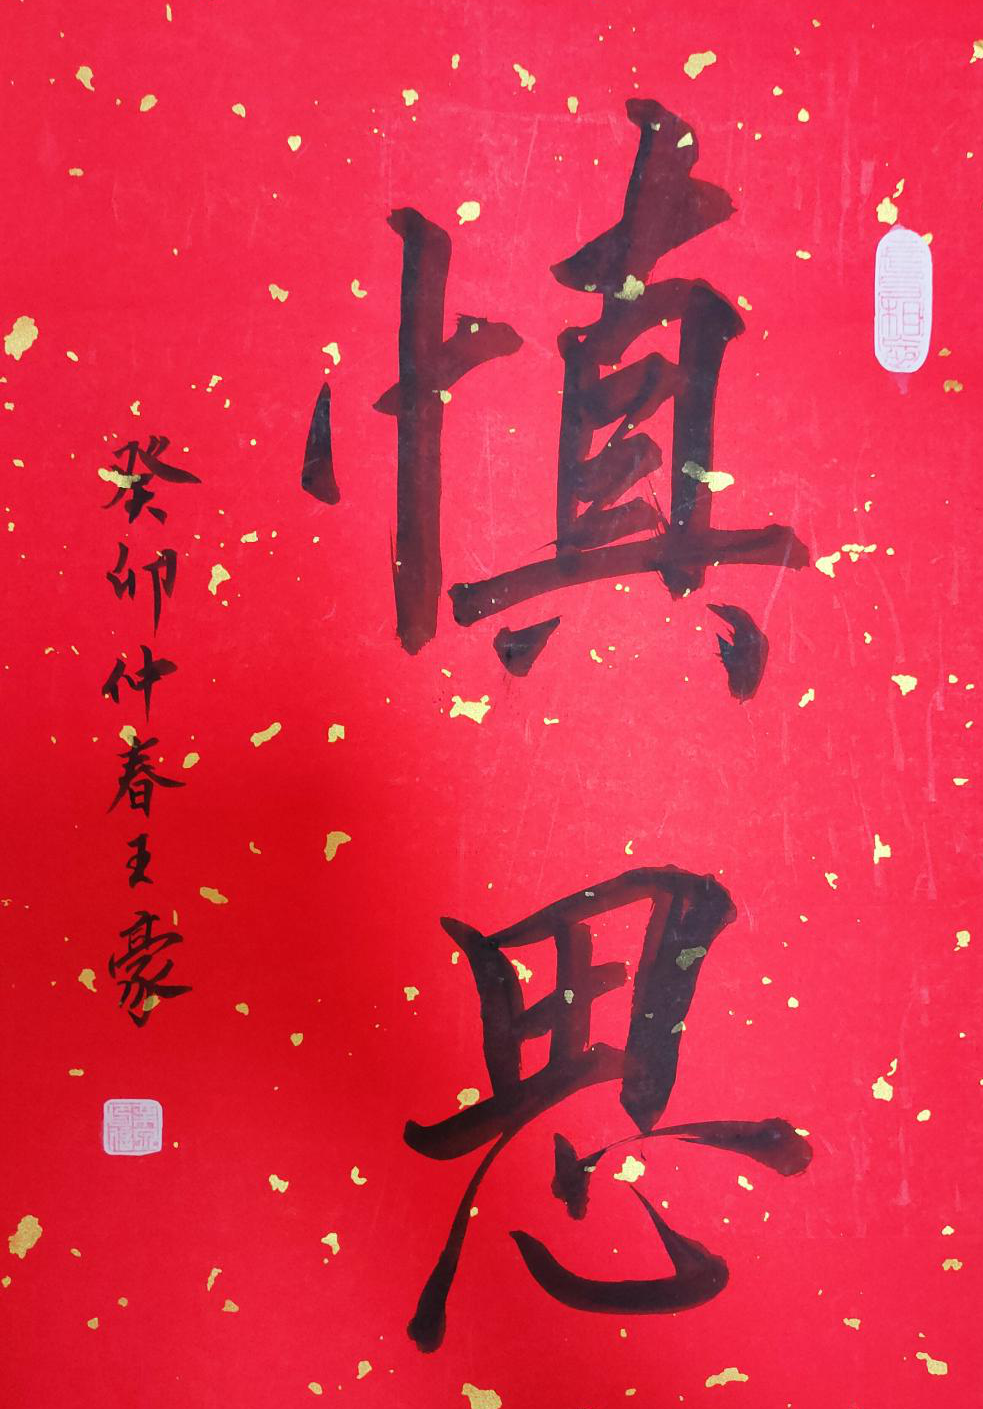 慎思
癸卯仲春王豪